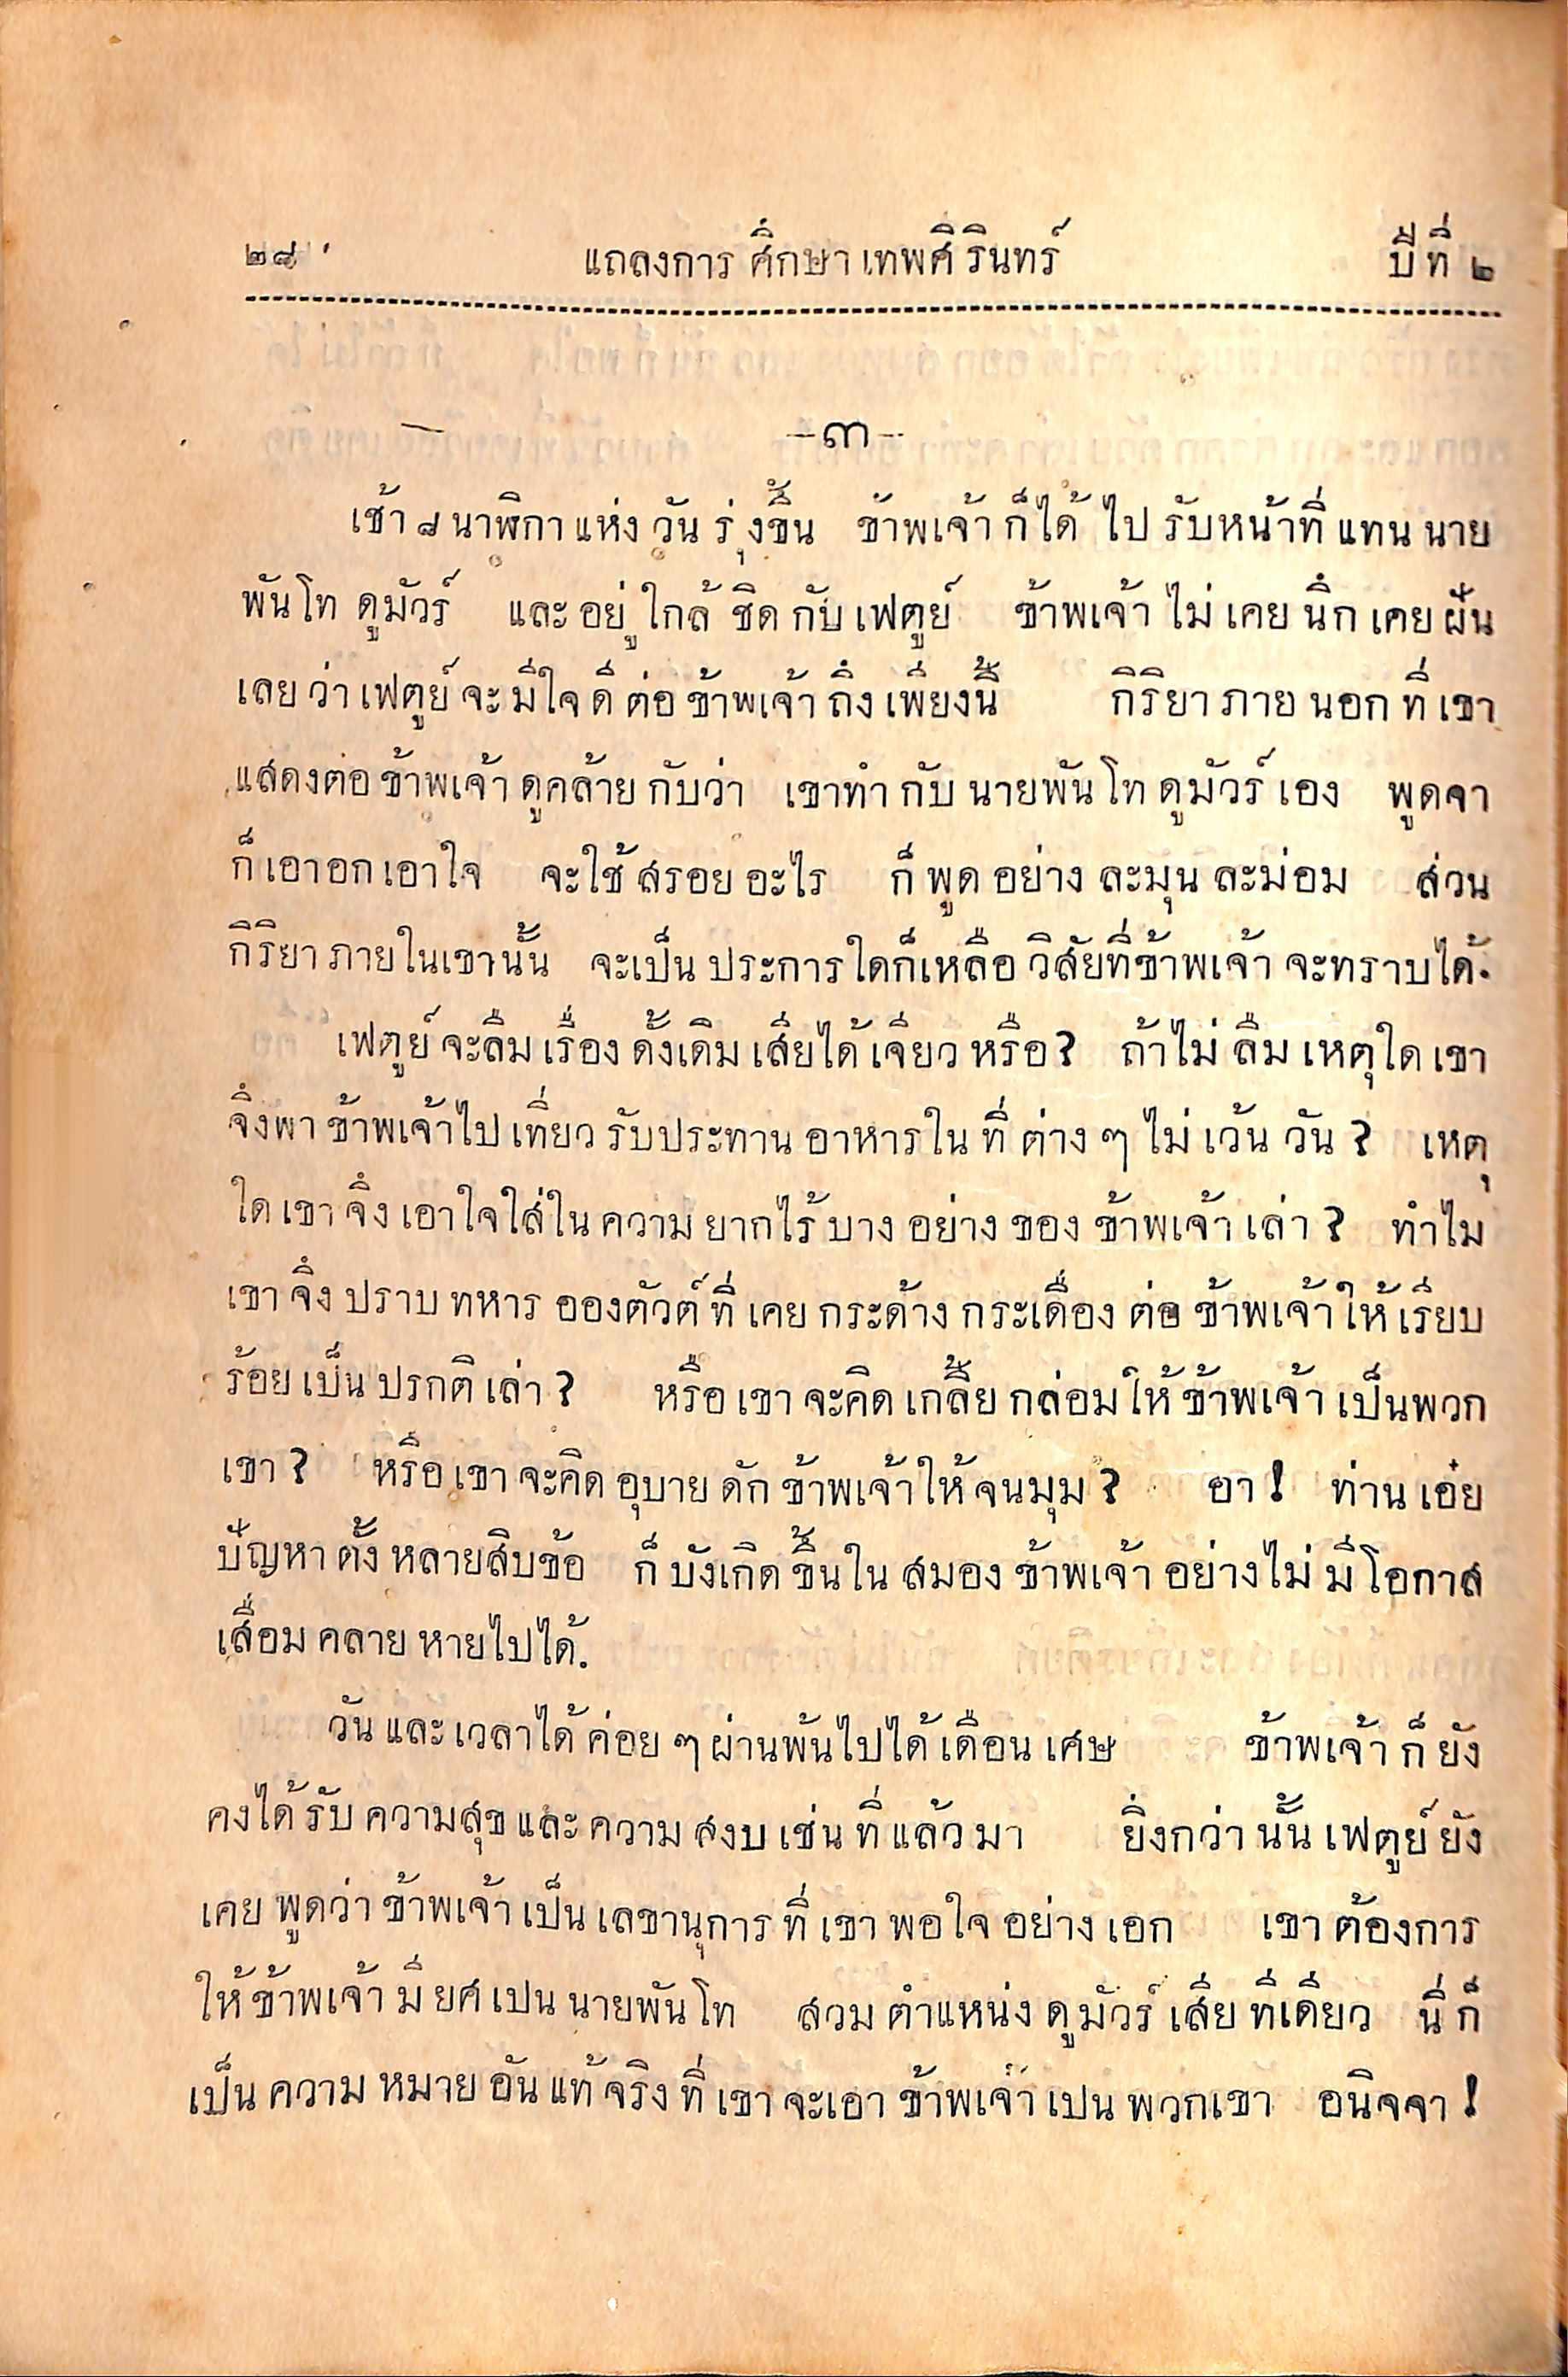 ๒๘ แถลงการศึกษาเทพศิรินทร์ ปีที่ ๒
-๓-
เช้า ๘ นาฬิกาแห่งวันรุ่งขึ้น ข้าพเจ้าก็ได้ไปรับหน้าที่แทนนาย
พันโทดูมัวร์ และอยู่ใกล้ชิดกับเฟตูย์ ข้าพเจ้าไม่เคยนึกเคยฝัน
เลยว่าเฟตูย์จะมีใจดีต่อข้าพเจ้าถึงเพียงนี้ กิริยาภายนอกที่เขา
แสดงต่อข้าพเจ้าดูคล้ายกับว่า เขาทำกับนายพันโทดูมัวร์เอง พูดจา
ก็เอาอกเอาใจ จะใช้สรอยอะไร ก็พูดอย่างละมุนละม่อม ส่วน
กิริยาภายในเขานั้น จะเป็นประการใดก็เหลือวิสัยที่ข้าพเจ้าจะทราบได้.
เฟตูย์จะลืมเรื่องดั้งเดิมเสียได้เจียวหรือ? ถ้าไม่ลืมเหตุใดเขา
จึงพาข้าพเจ้าไปเที่ยวรับประทานอาหารในที่ต่าง ๆ ไม่เว้นวัน? เหตุ
ใดเขาจึงเอาใจใส่ในความยากไร้บางอย่างของข้าพเจ้าเล่า? ทำไม
เขาจึงปราบทหารอองตัวต์ที่เคยกระด้างกระเดื่องต่อข้าพเจ้าให้เรียบ
ร้อยเป็นปรกติเล่า? หรือเขาจะคิดเกลี้ยกล่อมให้ข้าพเจ้าเป็นพวก
เขา? หรือเขาจะคิดอุบายดักข้าพเจ้าให้จนมุม? อา! ท่านเอ๋ย
ปัญหาตั้งหลายสิบข้อ ก็บังเกิดขึ้นในสมองข้าพเจ้าอย่างไม่มีโอกาส
เสื่อมคลายหายไปได้.
วันและเวลาได้ค่อย ๆ ผ่านพ้นไปได้เดือนเศษ ข้าพเจ้าก็ยัง
คงได้รับความสุขและความสงบเช่นที่แล้วมา ยิ่งกว่านั้นเฟตูย์ยัง
เคยพูดว่าข้าพเจ้าเป็นเลขานุการที่เขาพอใจอย่างเอก เขาต้องการ
ให้ข้าพเจ้ามียศเปนนายพันโท สวมตำแหน่งดูมัวร์เสียทีเดียว นี่ก็
เป็นความหมายอันแท้จริงที่เขาจะเอาข้าพเจ้าเปนพวกเขา อนิจจา!